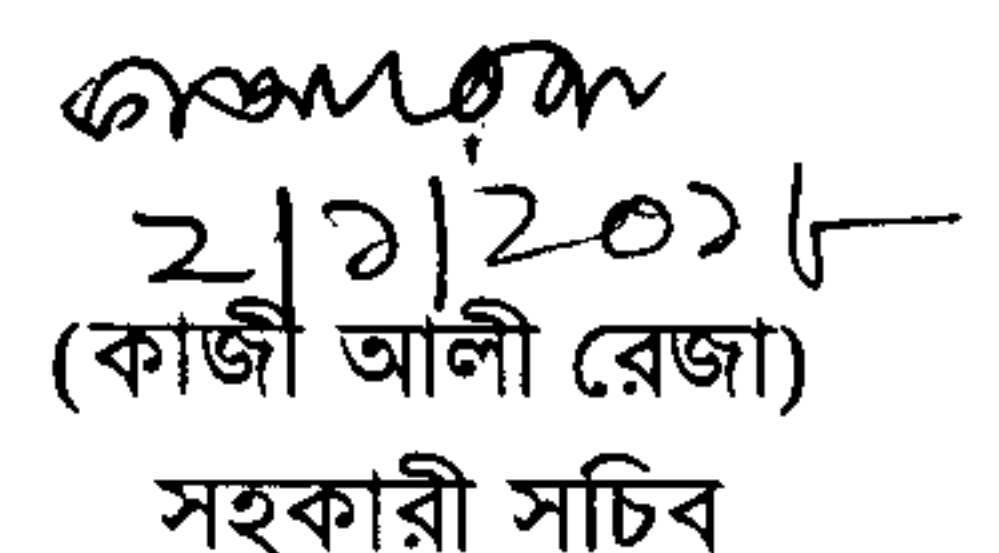 ২|১|২০১৮
(কাজী আলী রেজা)
সহকারী সচিব